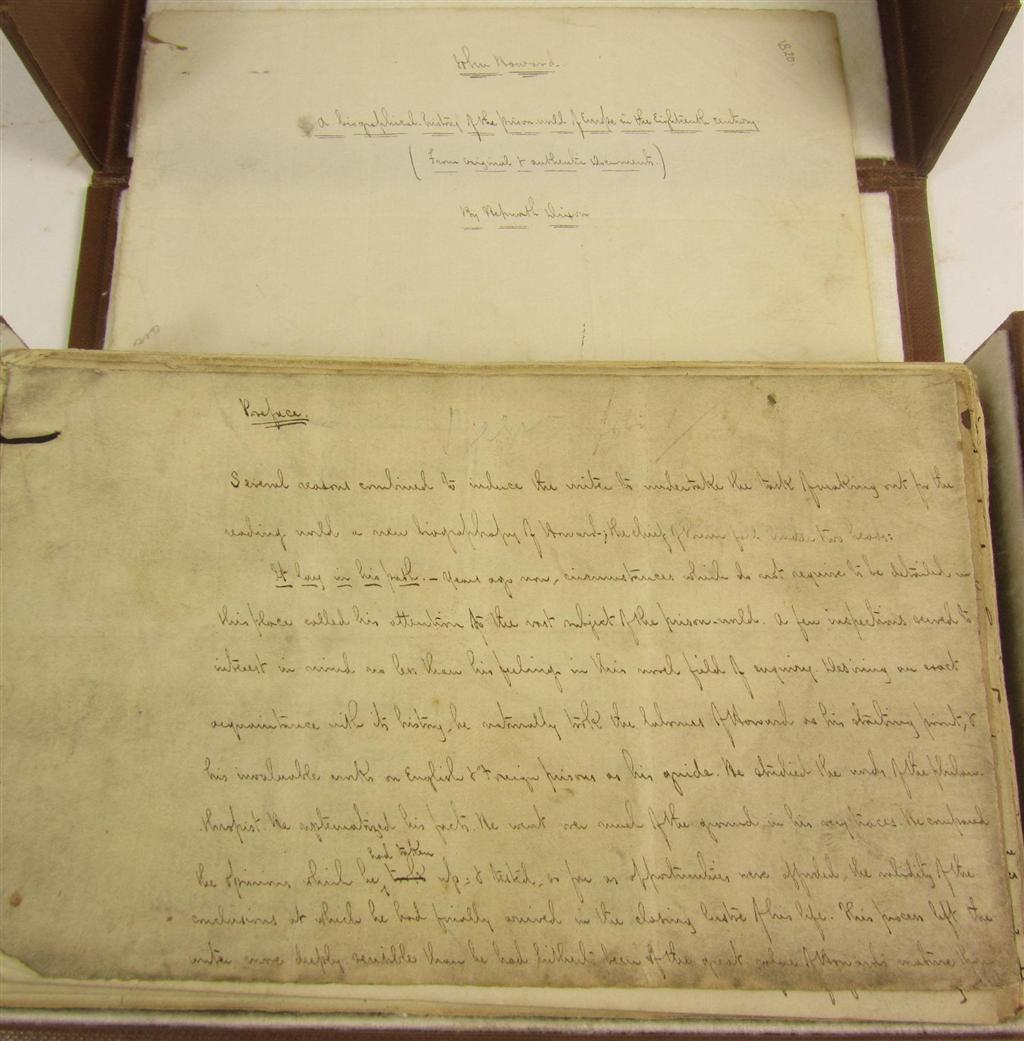 John Howard.
1820.
A biographical history of the prison world of Europe in the Eighteenth century.
(From original & authentic documents.)
By Hepworth Dixon
Preface.
Several reasons combined to induce the writer to undertake the task of making out for the
reading world a new biography of Howard; the chief of them fall under two heads:
It lay in his path. – Years ago now, circumstances which do not require to be detailed in
this place called his attention to the vast subject of the prison-world. A few inspections served to
interest his mind no less than his feelings in this novel field of enquiry. Desiring an exact
acquaintance with its history, he naturally took the labours of Howard as his starting point, &
his invaluable works on English & Foreign prisons as his guide. He studied the words of the philan-
thropist. He systematized his facts. He went over much of the ground in his very traces. He compared
had taken
the opinions which he took up: & tested, so far as opportunities were afforded, the validity of the
conclusions at which he had finally arrived in the closing lustre of his life. This process left the
writer more deeply sensible than he had hitherto been of the great value of Howard's mature